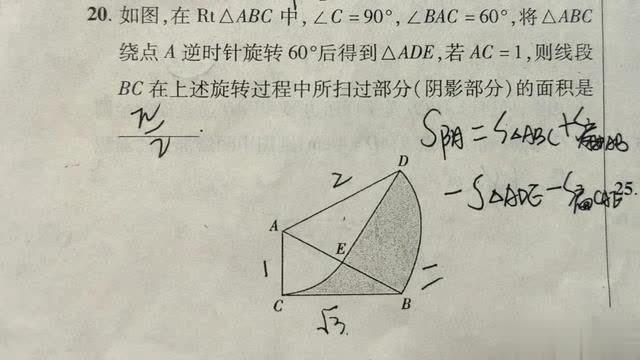 20. 如图,在 Rt△ABC 中,∠C=90°,∠BAC=60°,将△ABC
绕点 A 逆时针旋转 60°后得到△ADE,若 AC=1,则线段
BC 在上述旋转过程中所扫过部分(阴影部分)的面积是
π/2.
S阴=S△ABC+S扇
-S△ADE-S扇CAE
25.
D
2
A
E
1
C
B
=
√3